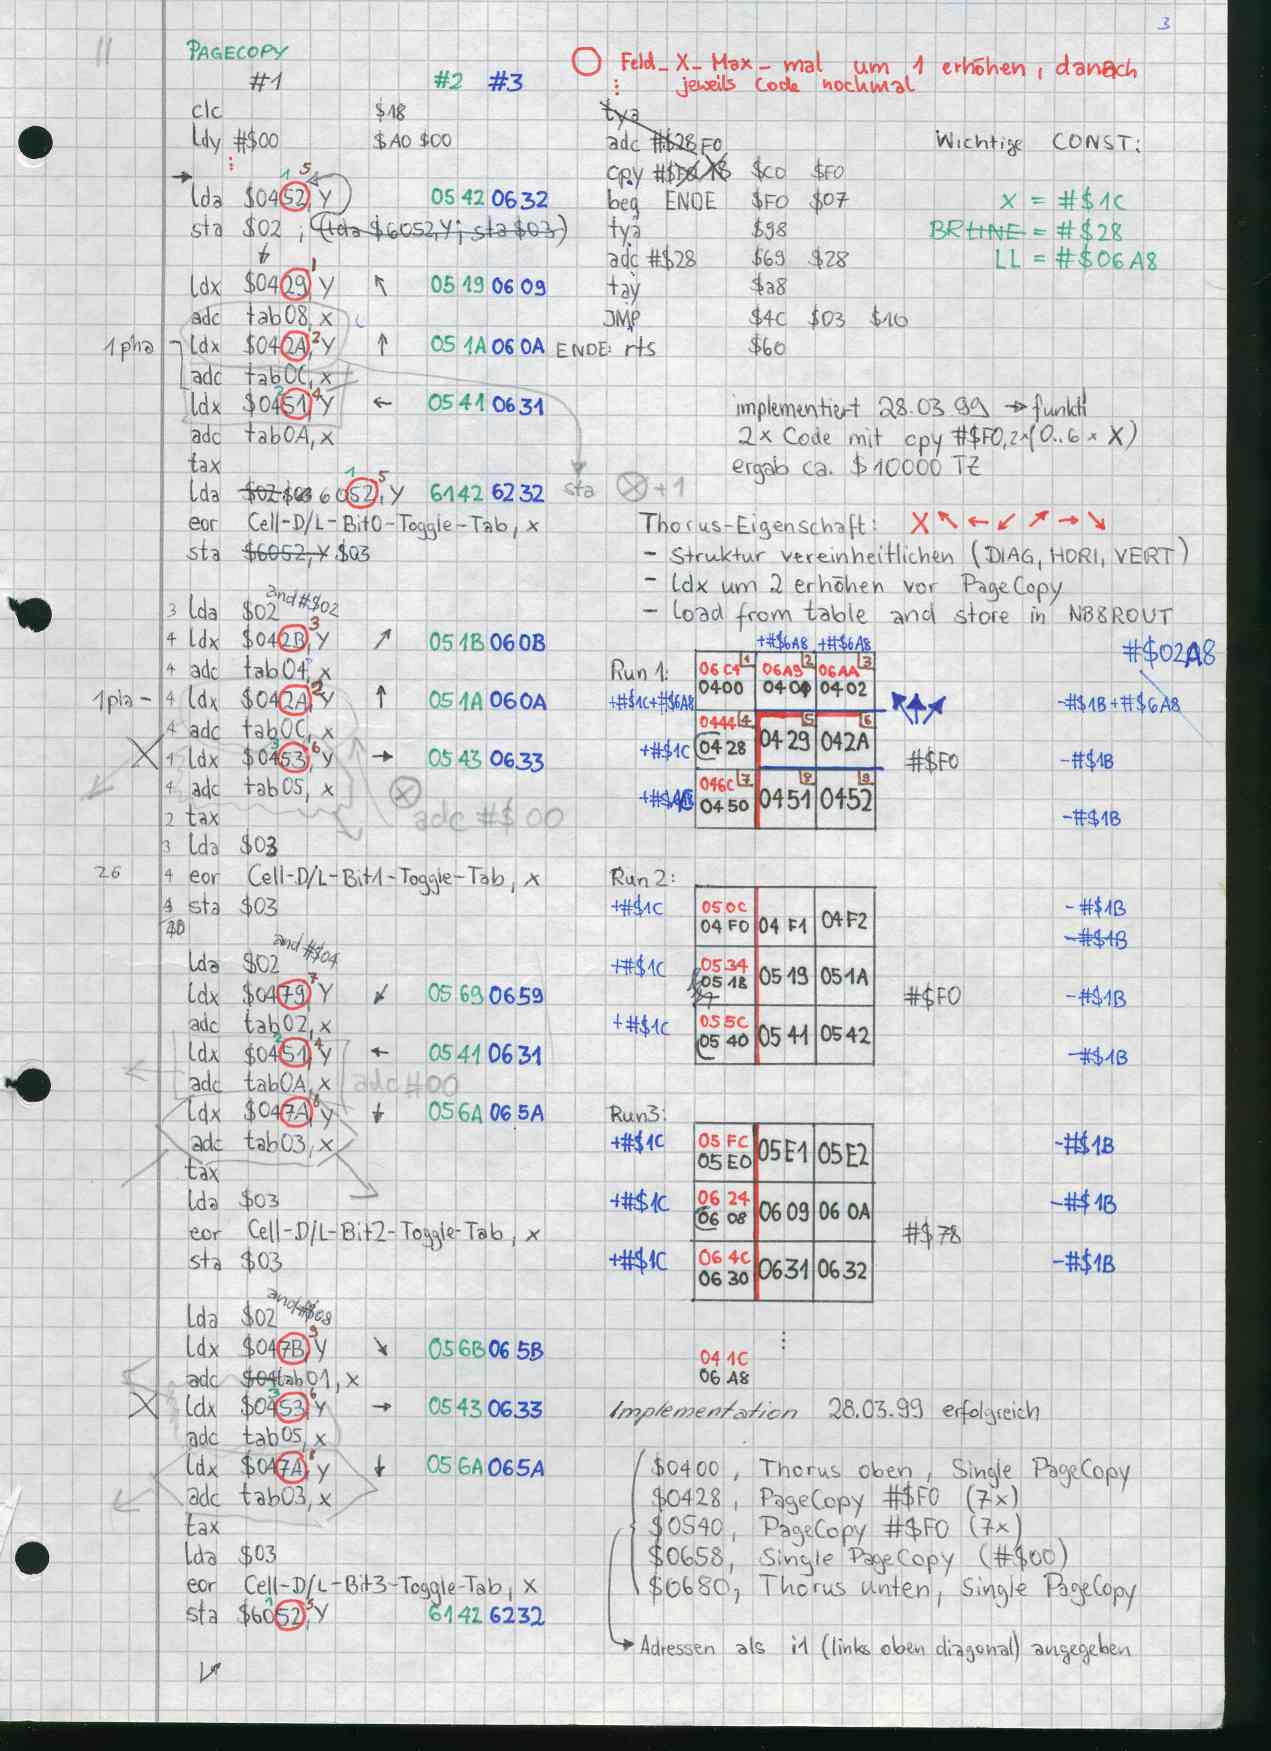 3
11
PAGECOPY
#1 #2 #3
clc $18
ldy #$00 $A0 $00
1 5
lda $0452,Y 0542 0632
sta $02 ; (lda $6052,Y; sta $03)
1
ldx $0429,Y ↖ 0519 0609
adc tab08,x
1pha ldx $042A,Y 2 ↑ 051A 060A
adc tab0C,x
ldx $0451,Y 2 4 ← 0541 0631
adc tab0A,x
tax
1 5
lda $02 $03 6052,Y 6142 6232 sta ⊗+1
eor Cell-D/L-Bit0-Toggle-Tab, x
sta $6052,Y $03
3 lda $02 and #$02
4 ldx $042B,Y 3 ↗ 051B 060B
4 adc tab04,x
1pla - 4 ldx $042A,Y 2 ↑ 051A 060A
4 adc tab0C,x
X 4 ldx $0453,Y 3 6 → 0543 0633
4 adc tab05,x ⊗ adc #$00
2 tax
3 lda $03
26 4 eor Cell-D/L-Bit1-Toggle-Tab, x
4 sta $03
40
lda $02 and #$04
ldx $0479,Y 7 ↙ 0569 0659
adc tab02,x
ldx $0451,Y 2 4 ← 0541 0631
adc tab0A,x adc #00
ldx $047A,Y 8 ↓ 056A 065A
adc tab03,x
tax
lda $03
eor Cell-D/L-Bit2-Toggle-Tab, x
sta $03
lda $02 and #$08
ldx $047B,Y 9 ↘ 056B 065B
adc $04tab01,x
X ldx $0453,Y 3 6 → 0543 0633
adc tab05,x
ldx $047A,Y 8 ↓ 056A 065A
adc tab03,x
tax
lda $03
eor Cell-D/L-Bit3-Toggle-Tab, x
sta $6052,Y 1 5 6142 6232
○ Feld_X_Max_mal um 1 erhöhen, danach
: jeweils Code nochmal
tya
adc #$28 F0
cpy #$F0 $C0 $F0
beq ENDE $F0 $07
tya $98
adc #$28 $69 $28
tay $a8
JMP $4C $03 $10
ENDE: rts $60
Wichtige CONST:
X = #$1C
BRLINE = #$28
LL = #$06A8
implementiert 28.03.99 → funkti
2x Code mit cpy #$F0, 2x(0..6 x X)
ergab ca. $10000 TZ
Thorus-Eigenschaft: X ↖ ← ↙ ↗ → ↘
- Struktur vereinheitlichen (DIAG, HORI, VERT)
- ldx um 2 erhöhen vor PageCopy
- Load from table and store in NB8ROUT
+#$6A8 +#$6A8 #$02A8
Run 1: 06C4 1 06A9 2 06AA 3
+#$1C+#$6A8 0400 0401 0402 -#$1B+#$6A8
0444 4 5 6
+#$1C 0428 0429 042A #$F0 -#$1B
046C 7 8 9
+#$1C 0450 0451 0452 -#$1B
Run 2:
+#$1C 050C -#$1B
04F0 04F1 04F2 -#$1B
+#$1C 0534
0518 0519 051A #$F0 -#$1B
+#$1C 055C
0540 0541 0542 -#$1B
Run3:
+#$1C 05FC -#$1B
05E0 05E1 05E2
+#$1C 0624 -#$1B
0608 0609 060A #$78
+#$1C 064C -#$1B
0630 0631 0632
⋮
041C
06A8
Implementation 28.03.99 erfolgreich
$0400, Thorus oben, Single PageCopy
$0428, PageCopy #$F0 (7x)
$0540, PageCopy #$F0 (7x)
$0658, Single PageCopy (#$00)
$0680, Thorus unten, Single PageCopy
→ Adressen als i1 (links oben diagonal) angegeben